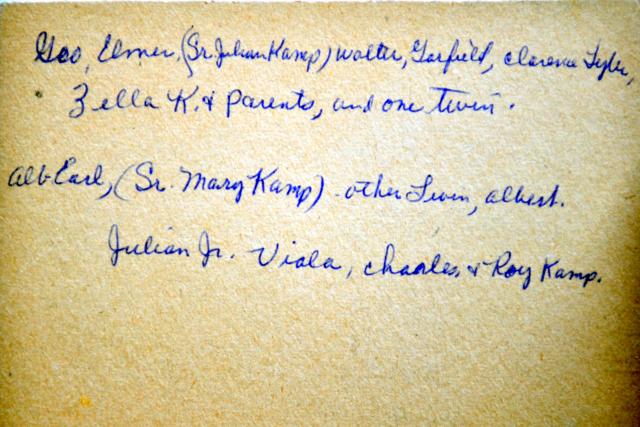 Geo, Elmer, (Sr. Julian Kamp) Walter, Garfield, Clarence
Zella K. & Parents, and one twin.
Earl, (Sr. Mary Kamp) - other Twin, albert.
Julian Jr. Viola, Charles, & Roy Kamp.